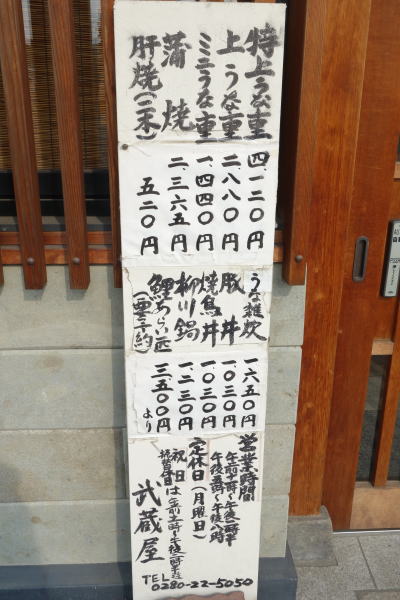 特上うな重
上うな重
ミニうな重
蒲焼
肝焼(二本)
四一二〇円
二、八八〇円
一、四四〇円
二、三六五円
五二〇円
うな雑炊
豚丼
焼鳥丼
柳川鍋
鯉あらい
(要予約)
一六五〇円
一〇三〇円
一〇三〇円
一二三〇円
三、五〇〇円
より
営業時間
午後五時〜午後八時
定休日(月曜日)
祝日は
武蔵屋
TEL
0280-22-5050